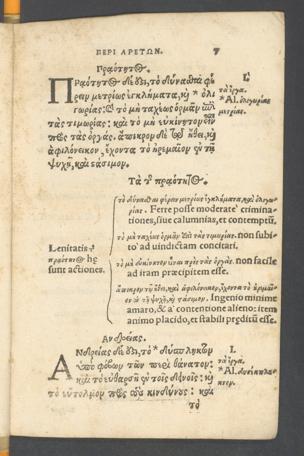 ΠΕΡΙ ΑΡΕΤΩΝ. 7
Πραότητος.
Πραότητος δέ ἐστι, τὸ δύνασθαι φέ
ρειν μετρίως ἐγκλήματα, καὶ * ὀλι
γωρίας: καὶ τὸ μὴ ταχέως ὁρμᾶν ἐπὶ
τὰς τιμωρίας: καὶ τὸ μὴ εὐκίνητον εἶναι
πρὸς τὰς ὀργάς. ἄπικρον δὲ τῷ ἤθει, καὶ
ἀφιλόνεικον, ἔχοντα τὸ ἠρεμαῖον ἐν τῇ
ψυχῇ, καὶ στάσιμον.
τὰ ἔργα.
* Al. ὀλιγωρίας
μετρίας.
Τὰ τῆς πραότητος.
Lenitatis
πραότητος hæ
sunt actiones.
τὸ δύνασθαι φέρειν μετρίως ἐγκλήματα, καὶ ὀλιγω
ρίας. Ferre posse moderatè criminationes, siue calumnias, et contemptū.
τὸ μὴ ταχέως ὁρμᾶν ἐπὶ τὰς τιμωρίας. non subi-
to ad uindictam concitari.
τὸ μὴ εὐκίνητον εἶναι πρὸς τὰς ὀργάς. non facile
ad iram præcipitem esse.
ἄπικρον τῷ ἤθει, καὶ ἀφιλόνεικον, ἔχοντα τὸ ἠρεμαῖ-
ον ἐν τῇ ψυχῇ, καὶ στάσιμον. Ingenio minime
amaro, & à contentione alieno: item
animo placido, et stabili præditū esse.
Ἀνδρείας.
Ἀνδρείας δέ ἐστι, τὸ * δύσπληκτον
ὑπὸ φόβων τῶν περὶ θάνατον:
καὶ τὸ εὐθαρσῆ ἐν τοῖς δεινοῖς: καὶ
τὸ εὔτολμον πρὸς τοὺς κινδύνους: καὶ
τὸ
τὰ ἔργα.
* Al. δυσέκπλη-
κτον.